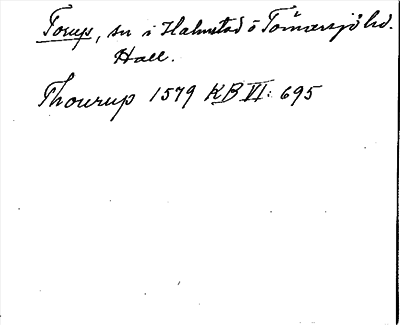 Torup, sn i Halmstad o Tönnersjö hd.
Hall.
Thourup 1579 KB VI: 695